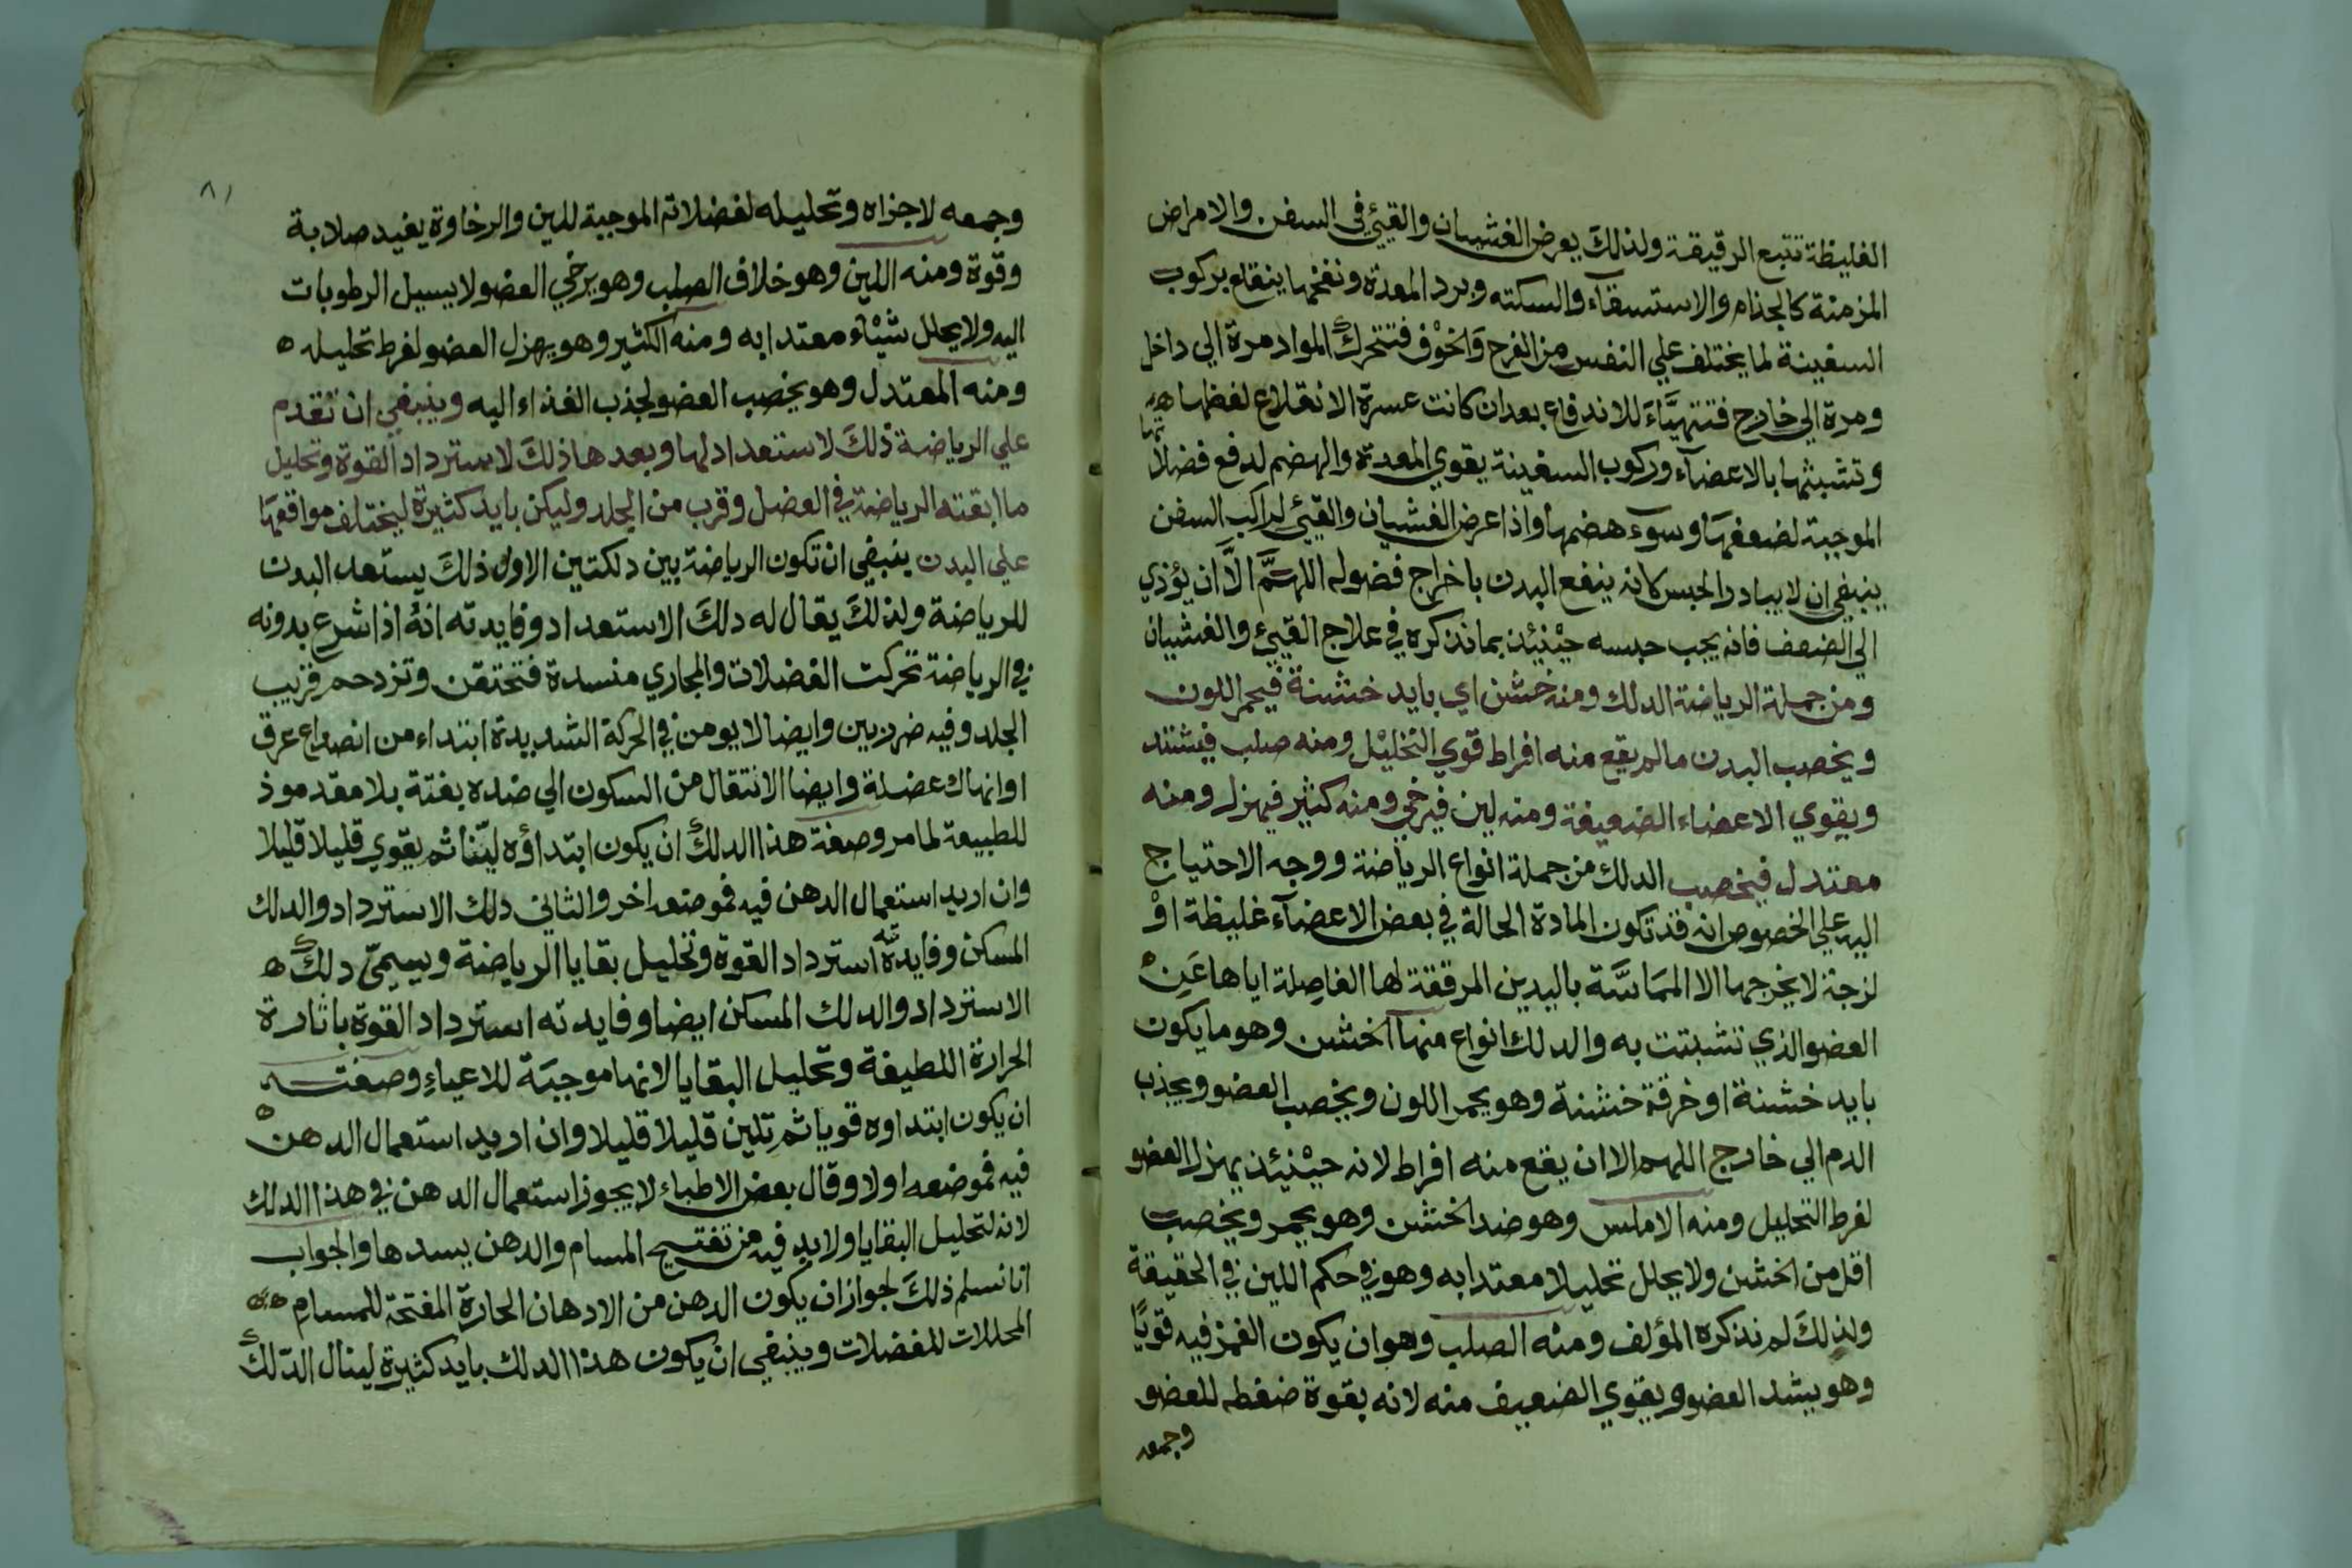 الغليظة تتبع الرقيقة ولذلكَ يعرض الغشيان والقيئ في السفن والامراض
المزمنة كالجذام والاستسقآء والسكته وبرد المعدة ونفخها ينقلع بركوب
السفينة لما يختلف علي النفس من الفرح وَالخوْف فتتحرك المواد مرة الي داخل
ومرة الي خارج فتتهيَّاءَ للاندفاع بعد ان كانت عسرة الانقلاع لغظها
وتشبثها بالاعضآء وركوب السفينة يقوي المعدة والهضم لدفع فضلاتها
الموجبة لضعفهَا وسوء هضمها واذا عرض الغشيان والقيئ لراكب السفن
ينبغي ان لا يبادر الحبس كانه ينفع البدن باخراج فضوله اللهمَّ الَّا ان يؤذي
الي الضعف فانه يجب حبسه حيْنئِذ بما نذكره في علاج القيئ والغشيان
ومن جملة الرياضة الدلك ومنه خشن اي بايد خشنة فيحمر اللون
ويخصب البدن ما لم يقع منه افراط قوي التحليْل ومنه صلب فيشتد
ويقوي الاعضاء الضعيفة ومنه لين فيرخي ومنه كثير فيهزل ومنه
معتدل فيخصب الدلك من جملة انواع الرياضة ووجه الاحتياج
اليه علي الخصوص انه قد تكون المادة الحالة في بعض الاعضآء غليظة اوْ
لزجة لا يخرجها الا المَمَاسَّة باليدين المرققة لها الفاصِلة اياها عَن
العضو الذي تشبثت به والدلك انواع منها الخشن وهو ما يكون
بايد خشنة او خرقة خشنة وهو يحمر اللون ويخصب العضو ويجذب
الدم الي خارج اللهم الا ان يقع منه افراط لانه حيْنئِذ يهزل العضو
لفرط التحليل ومنه الاملس وهو ضد الخشن وهو يحمر ويخصب
اقل من الخشن ولا يحلل تحليلا معتدا به وهو في حكم اللين في الحقيقة
ولذلكَ لم نذكره المؤلف ومنْه الصلب وهو ان يكون الغمز فيه قويًا
وهو يشد العضو ويقوي الضعيف منه لانه بقوة ضغطه للعضو
وجمعه
٨١
وجمعه لاجزاه وتحليله لفضلاته الموجبة للين والرخاوة يفيد صلابة
وقوة ومنه اللين وهو خلاف الصلب وهو يرخي العضو لا يسيل الرطوبات
اليه ولا يحلل شيْاء معتدا به ومنه الكثير وهو يهزل العضو لفرط تحليله
ومنه المعتدل وهو يخصب العضو لجذب الغذاء اليه وينبغي ان تقدم
علي الرياضة ذلكَ لاستعداد لها وبعدها ذلكَ لاسترداد القوة وتحليل
ما ابقته الرياضة في العضل وقرب من الجلد وليكن بايد كثيرة ليختلف مواقعهَا
علي البدن ينبغي ان تكون الرياضة بين دلكتين الاول ذلكَ يستعد البدن
للرياضة ولذلكَ يقال له دلكَ الاستعداد وفايدته انهُ اذا شرع بدونه
في الرياضة تحركت الفضلات والمجاري منسدة فتحتقن وتزدحم قريب
الجلد وفيه ضربين وايضا لا يومن في الحركة الشديدة ابتداء من انصداع عرق
او انهاك عضلة وايضا الانتقال من السكون الي ضده بغتة بلا مقدم موذ
للطبيعة لما مر وصفة هذا الدلك ان يكون ابتداؤه ليّنا ثم يقوي قليلا قليلا
وان اريد استعمال الدهن فيه فموضعه اخر والثاني دلك الاسترداد والدلك
المسكن وفايدته استرداد القوة وتحليل بقايا الرياضة ويسمِيّ دلك
الاسترداد والدلك المسكن ايضا وفايدته استرداد القوة باثارة
الحرارة اللطيفة وتحليل البقايا لانها موجبَة للاعياءِ وصفته
ان يكون ابتداوه قويا ثم تلين قليلا قليلا وان اريد استعمال الدهن
فيه فموضعه اولا وقال بعض الاطباء لا يجوز استعمال الدهن في هذا الدلك
لانه لتحليل البقايا ولا بد فيه من تفتيح المسام والدهن يسدها والجواب
انا نسلم ذلكَ لجواز ان يكون الدهن من الادهان الحارة المفتحة للمسامِ
المحللات للفضلات وينبغي ان يكون هذا الدلك بايد كثيرة لينال الدّلك